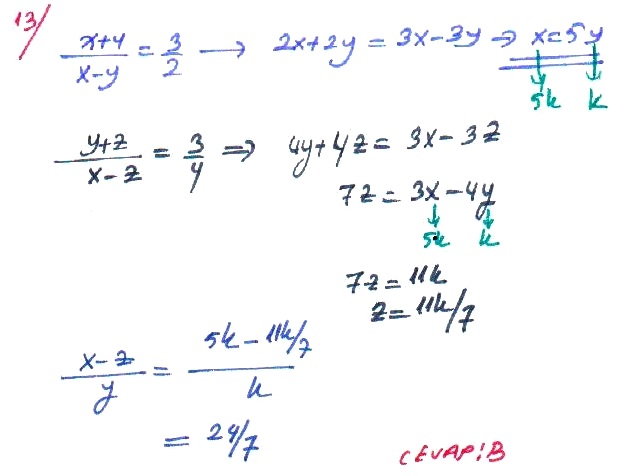 13/
x+y/x-y = 3/2 → 2x+2y = 3x-3y → x=5y
5k k
y+z/x-z = 3/4 ⇒ 4y+4z = 3x-3z
7z = 3x-4y
5k k
7z = 11k
z = 11k/7
x-z/y = 5k-11k/7/k
= 24/7
CEVAP:B